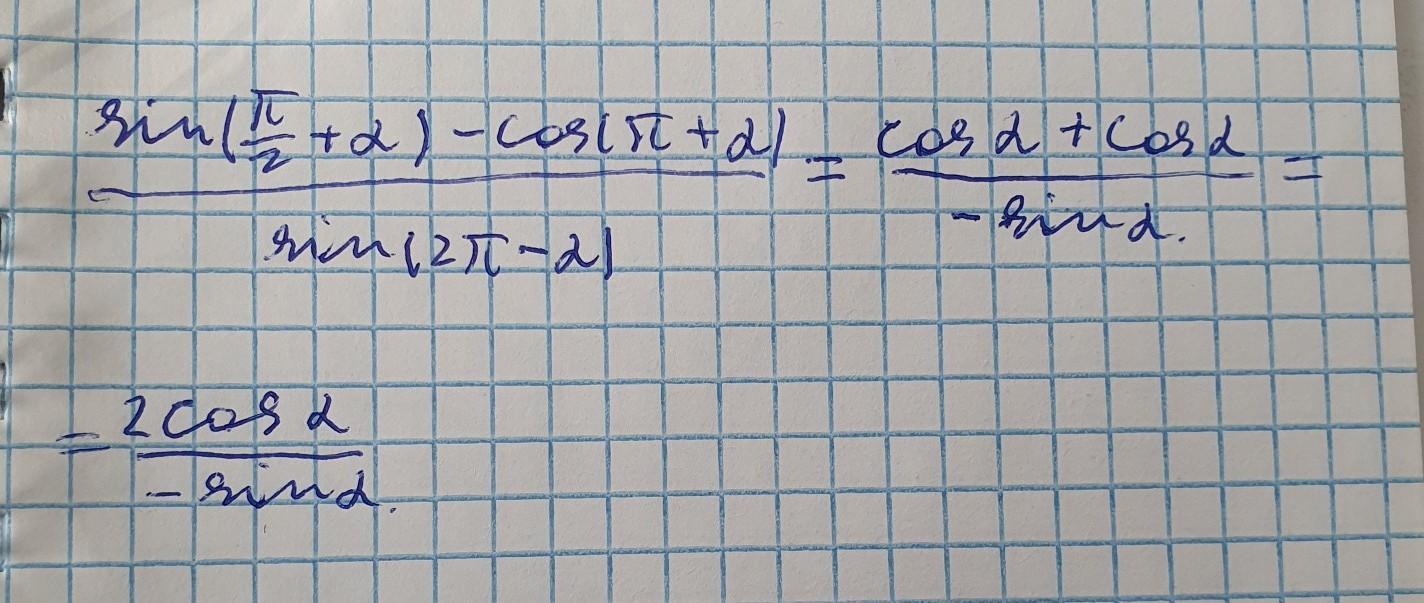 sin(π/2 + α) - cos(π + α) / sin(2π - α) = cos α + cos α / - sin α. =
= 2 cos α / - sin α.